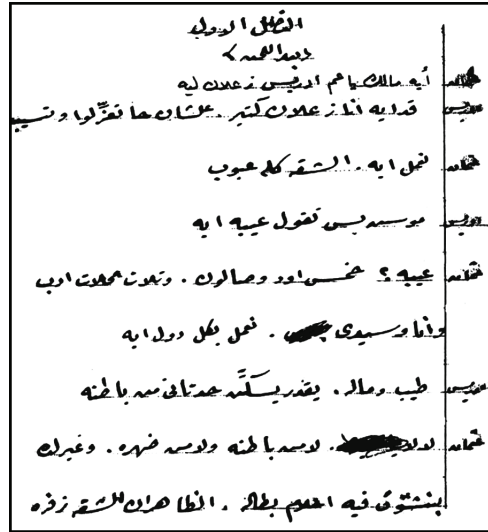 الفصل الاول
عثمان أيه مالك يا عم ادريس زعلان ليه
ادريس قد ايه أنا زعلان كتير. علشان حا تعزّلوا وتسيبـ
عثمان نعمل ايه. الشقه كلها عيوب
ادريس موسيو بس تقول عيبه ايه
عثمان عيبه؟ خمس اود وصالون. وتلات محلات ادب
وأنا وسيدى. نعمل بكل دول ايه
ادريس طيب وماله. يقدر يسكّن حد تانى من باطنه
عثمان لالا. لا من باطنه ولا من ضهره. وغيركده
بنشوف فيه احلام بطاله. الظاهر ان الشقه زفره